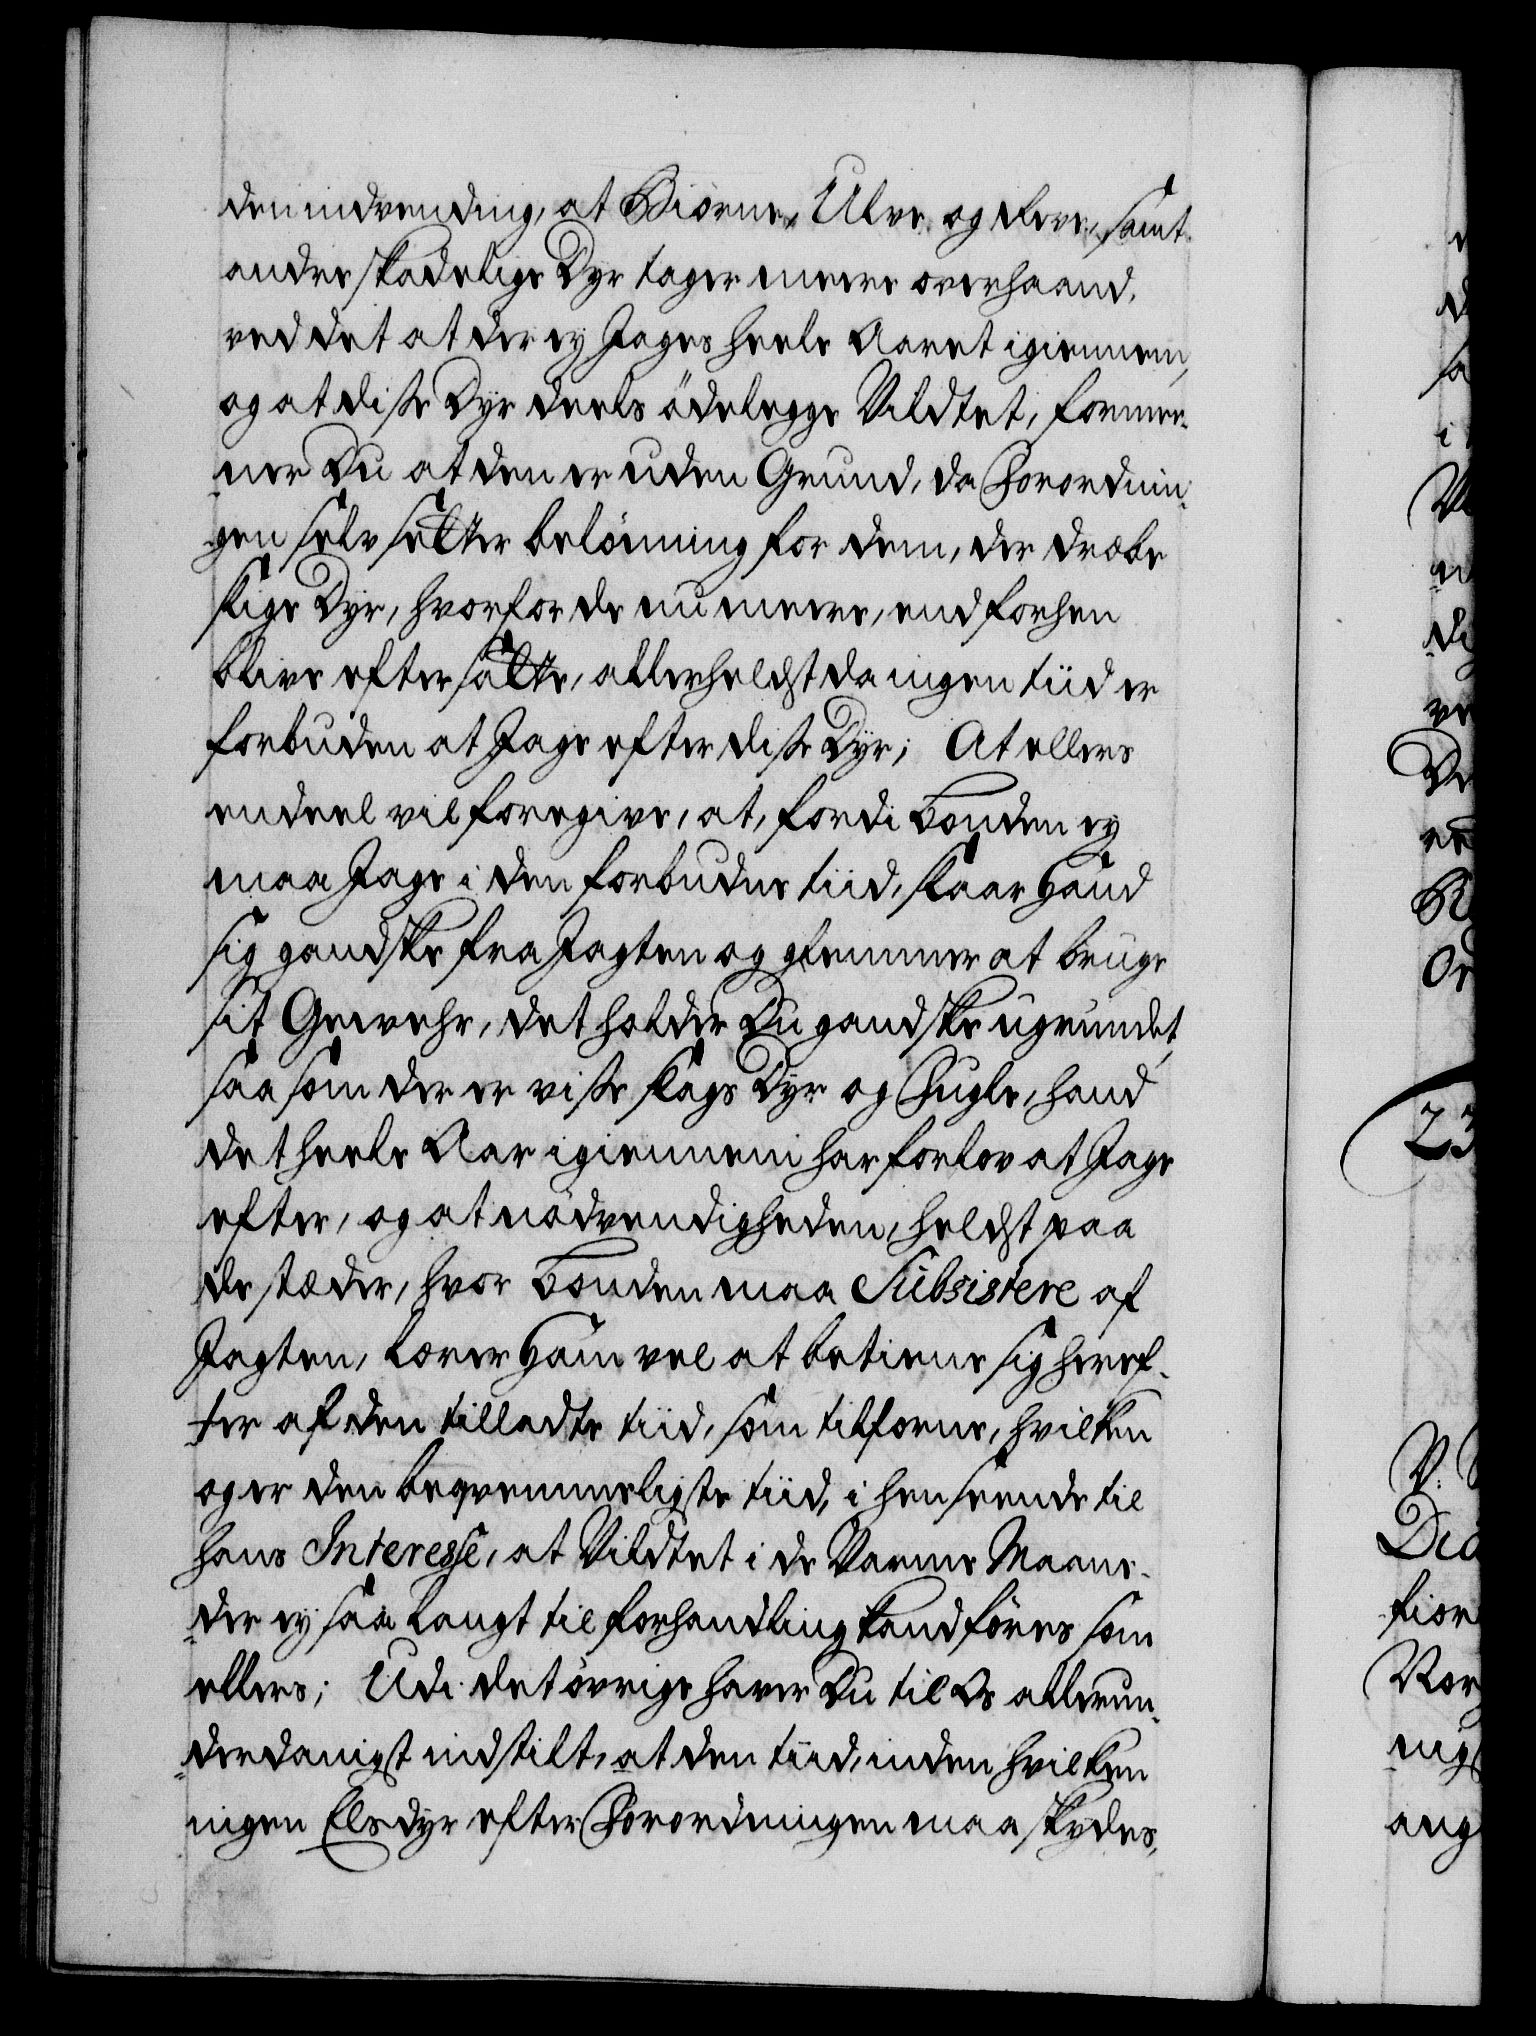 den indvending, at Biørne, Ulve og Jerve, samt
andre skadelige Dyr tager meere overhaand,
ved det at der ey Jages heele Aaret igiennem,
og at disse Dyr deels ödelegge Vildtet, formee-
ner Du at den er uden Grund, da Forordnin-
gen selv sætter belönning for dem, der dræbe
slige Dyr, hvorfor de nu meere, end forhen
blive eftersatte, allerheldst da ingen tiid er
forbuden at Jage efter disse Dyr; At ellers
endeel vil foregive, at, fordi bonden ey
maa Jage i den forbudne tiid, slaar hand
sig gandske fra Jagten og glemmer at bruge
sit Gevehr, det holder Du gandske ugrundet,
saa som der er visse slags Dyr og Fugle, hand
det heele Aar igiennem har forlov at Jage
efter, og at nödvendigheden, heldst paa
de stæder, hvor bonden maa Subsistere af
Jagten, lærer ham vel at betiene sig heref-
ter af den tilladte tiid, som tilforne, hvilken
og er den beqvemmeligste tiid, i henseende til
hans Interesse, at Vildtet i de Varme Maane-
der ey saa langt til forhandling kand föres som
ellers; Udi det övrige haver Du til Os allerun-
derdanigst indstilt, at den tiid, inden hvilken
ingen Elsdyr efter Forordningen maa skydes,